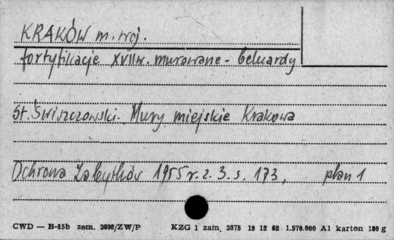 KRAKÓW m. woj.
fortyfikacje XVIIw. murowane - beluardy
St. Świszczowski. Mury miejskie Krakowa
Ochrona Zabytków 1955 r. z. 3. s. 173, plan 1
CWD — B-15b zam. 2898/ZW/P KZG 1 zam. 2075 19 12 62 1.570.000 A1 karton 180 g